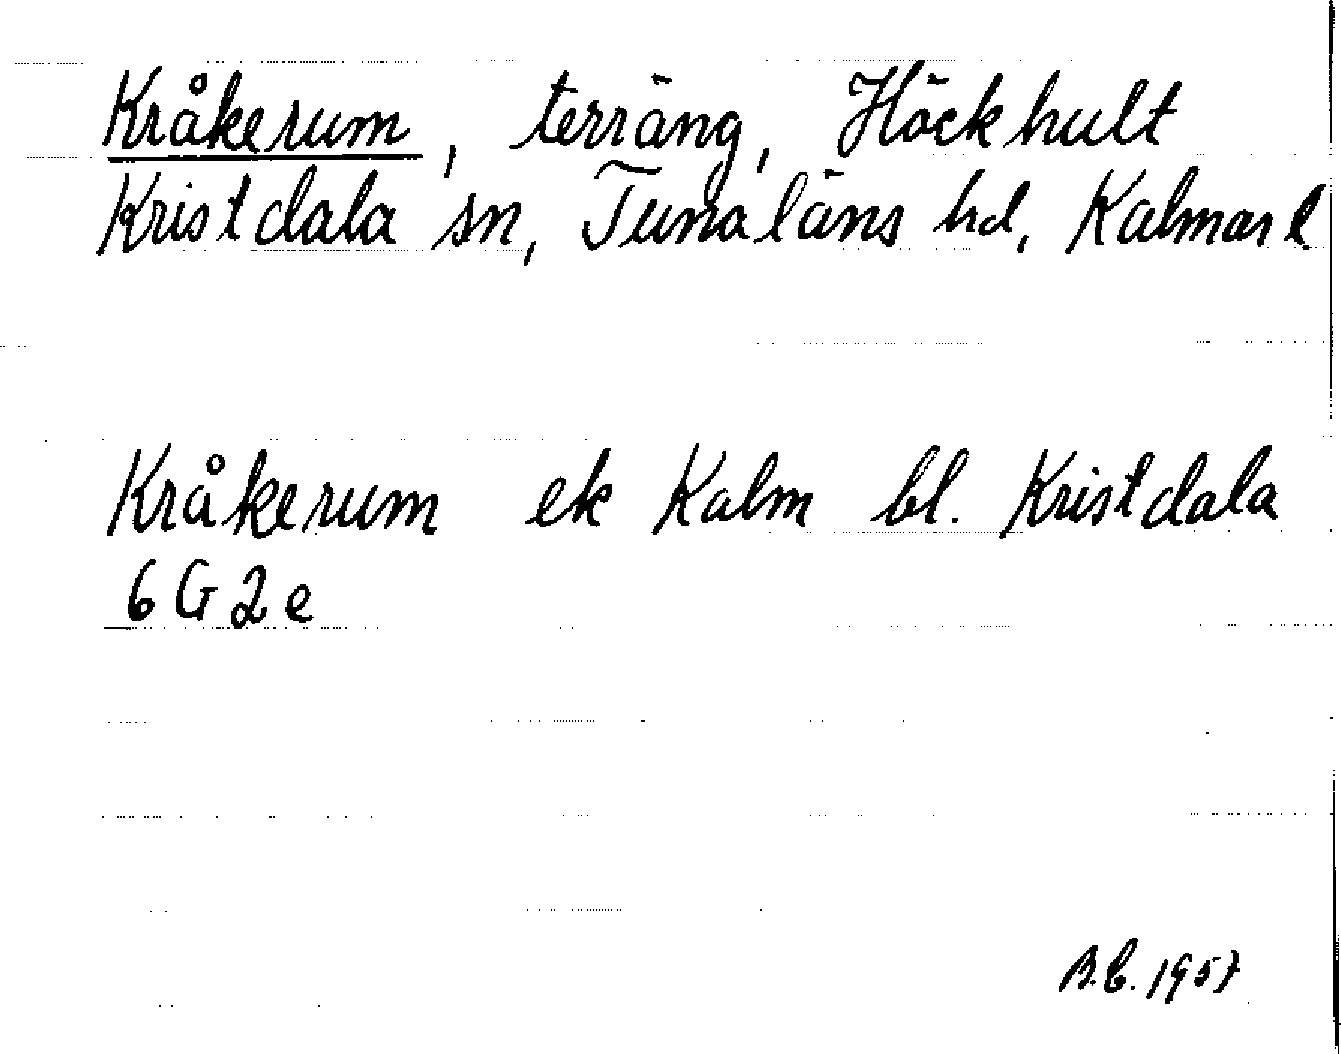 Kråkerum, terräng, Höckhult
Kristdala sn, Tunaläns hd, Kalmar l.
Kråkerum ek Kalm bl. Kristdala
6 G 2 e
B.C. 1957